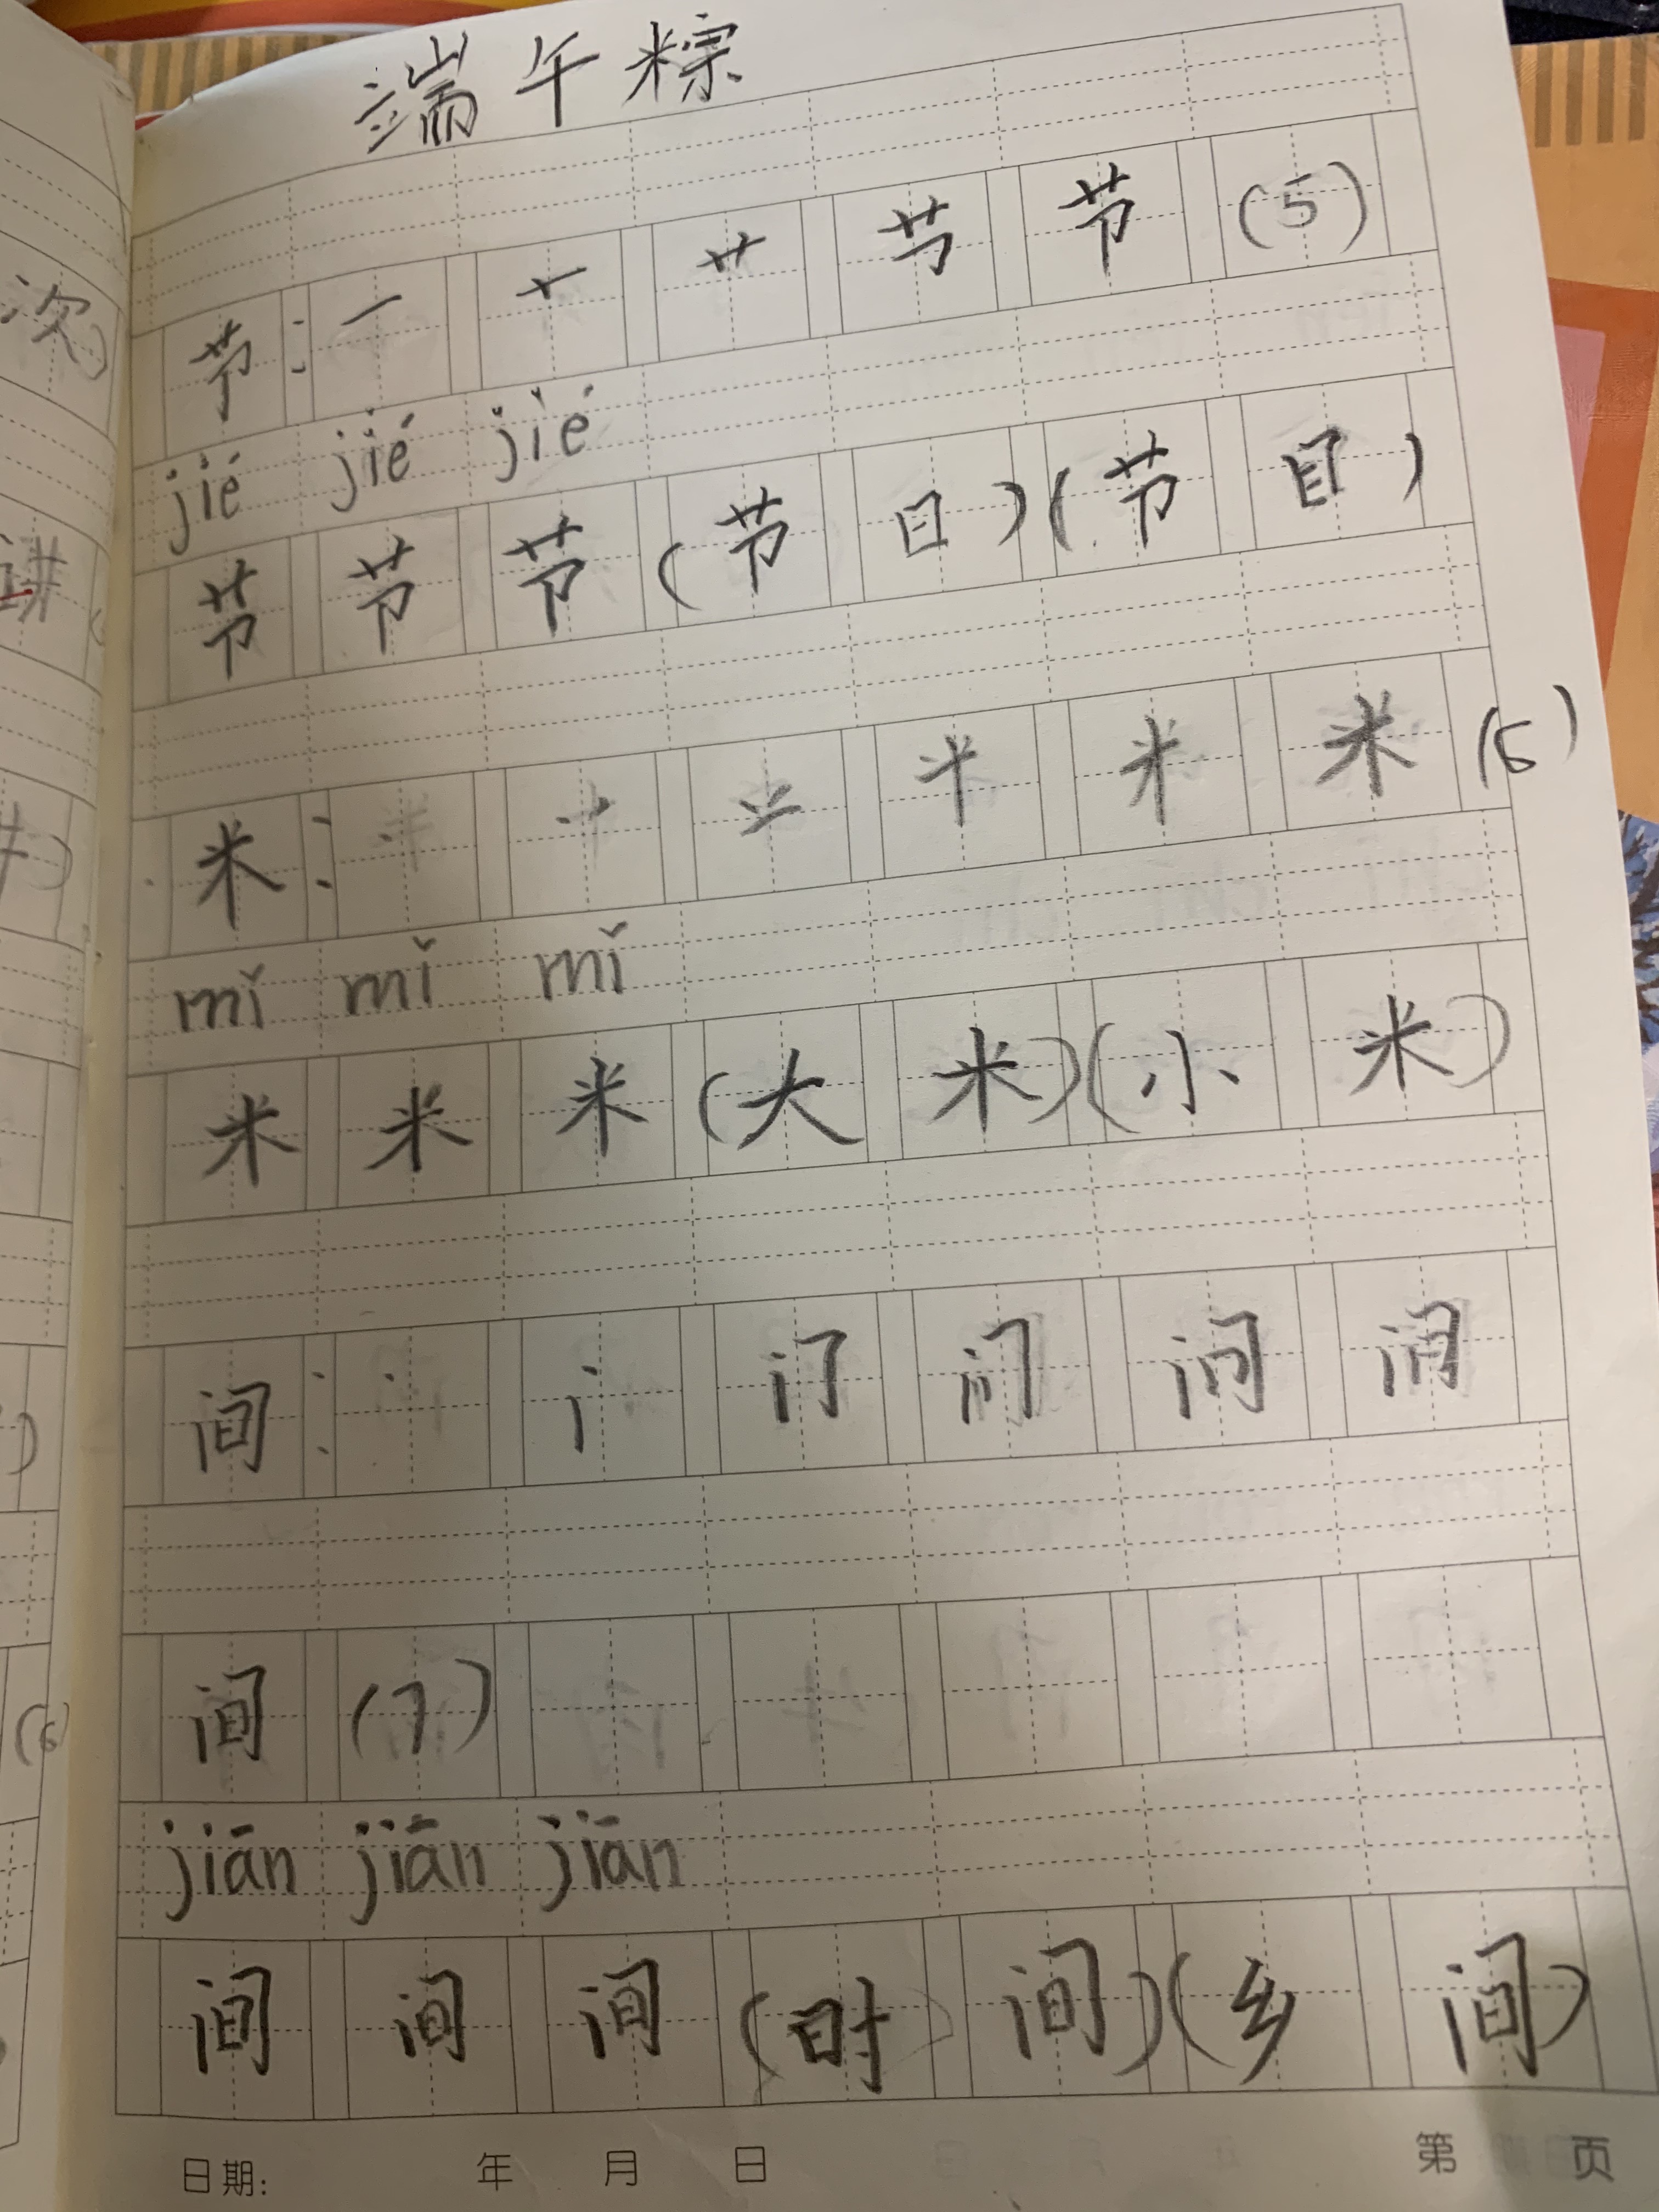 端午粽
节：一 十 艹 节 (5)
jié jié jié
节 节 节 (节日)(节目)
米： 丶 丷 米 (6)
mǐ mǐ mǐ
米 米 米 (大米)(小米)
间： 丶 门 问 间
间 (7)
jiān jiān jiān
间 间 间 (时间)(乡间)
日期： 年 月 日 第 页
次
讲
(6)